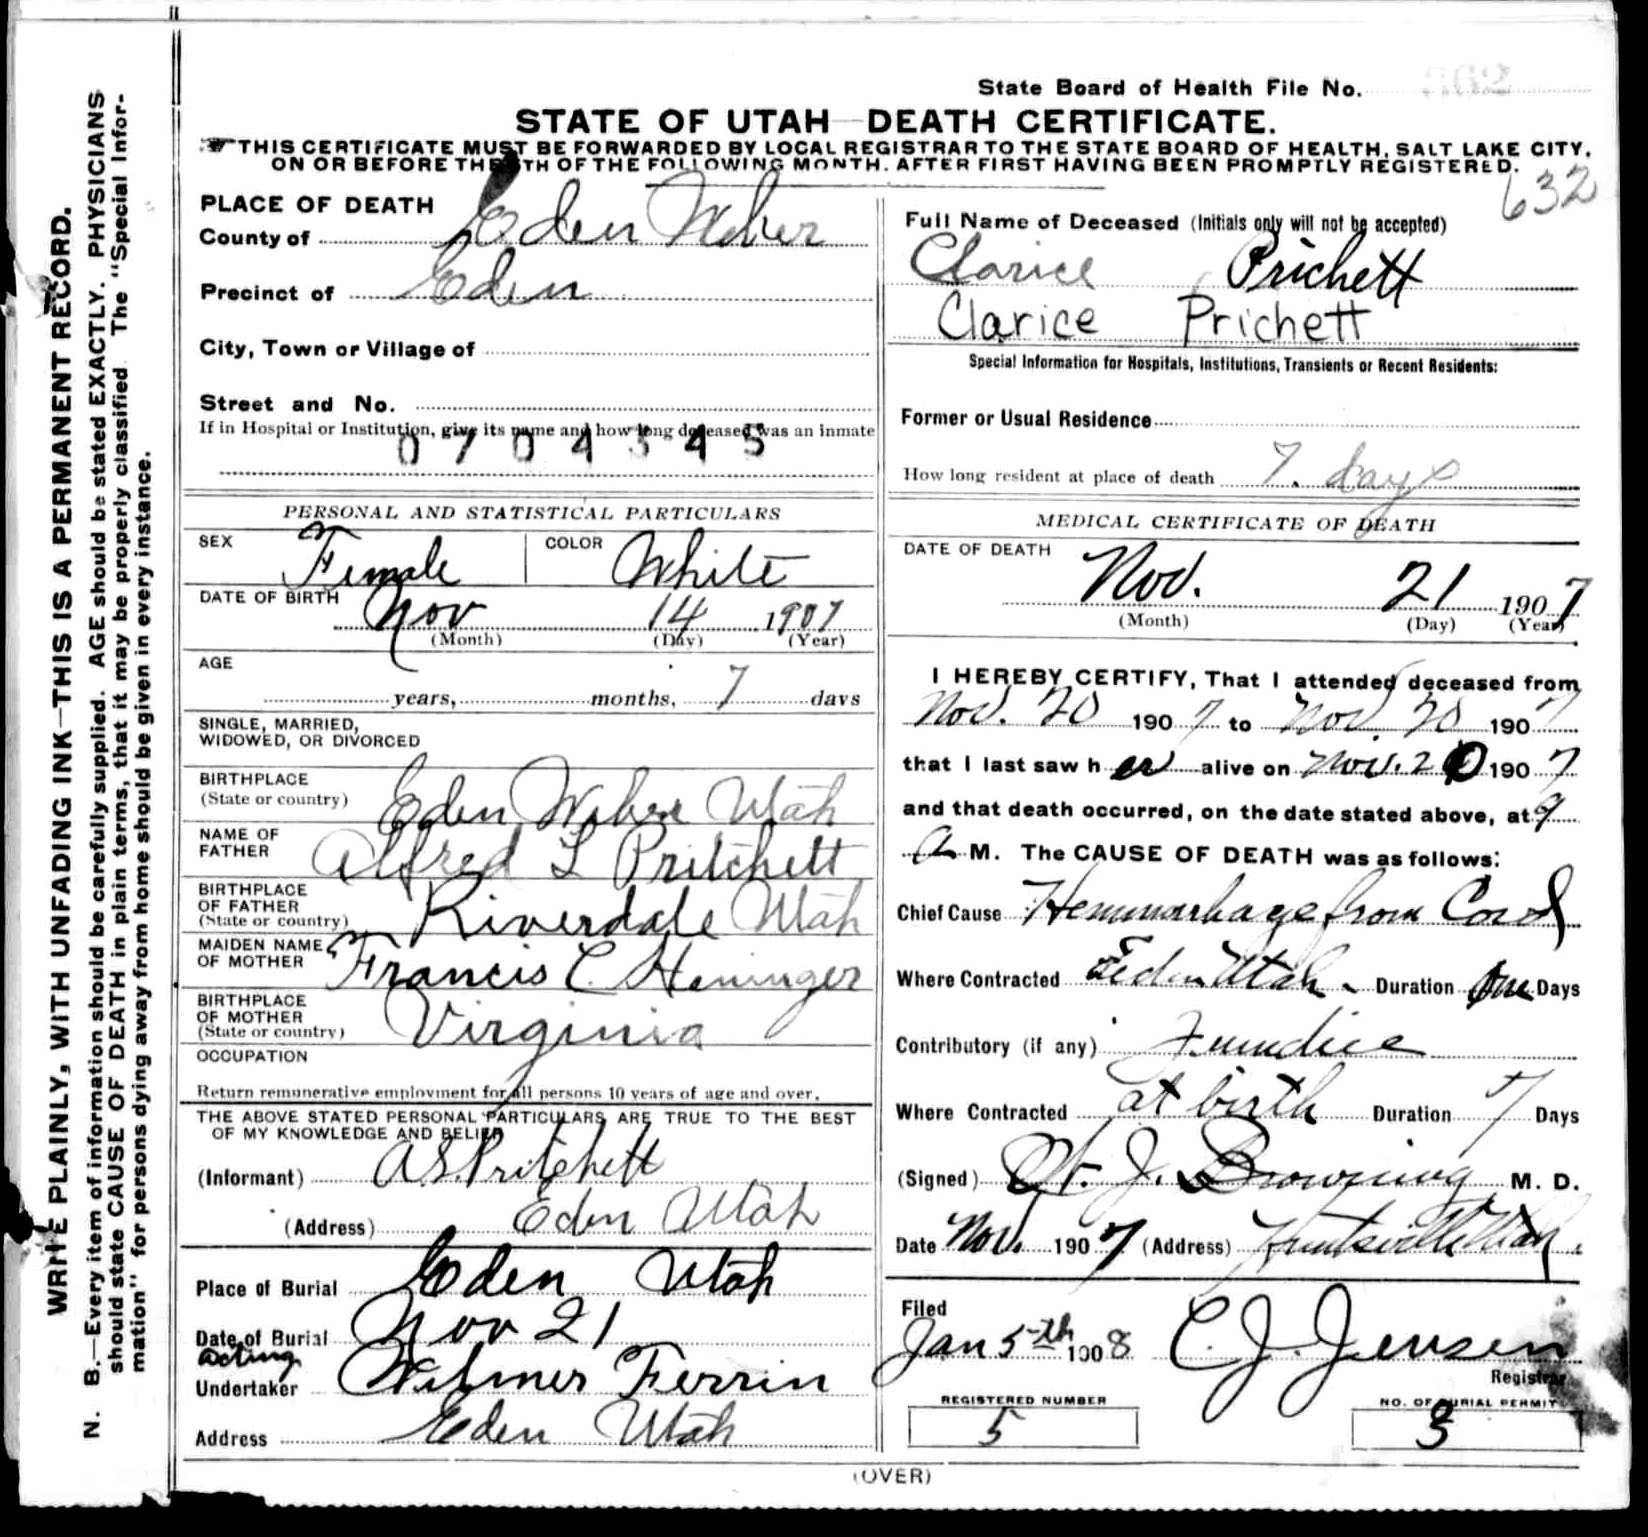 WRITE PLAINLY, WITH UNFADING INK—THIS IS A PERMANENT RECORD.
N. B.—Every item of information should be carefully supplied. AGE should be stated EXACTLY. PHYSICIANS
should state CAUSE OF DEATH in plain terms, that it may be properly classified The "Special Infor-
mation" for persons dying away from home should be given in every instance.
State Board of Health File No. 362
STATE OF UTAH—DEATH CERTIFICATE.
THIS CERTIFICATE MUST BE FORWARDED BY LOCAL REGISTRAR TO THE STATE BOARD OF HEALTH, SALT LAKE CITY,
ON OR BEFORE THE 5TH OF THE FOLLOWING MONTH. AFTER FIRST HAVING BEEN PROMPTLY REGISTERED.
632
PLACE OF DEATH
County of Eden Weber
Precinct of Eden
City, Town or Village of
Street and No.
If in Hospital or Institution, give its name and how long deceased was an inmate
0704345
PERSONAL AND STATISTICAL PARTICULARS
SEX Female COLOR White
DATE OF BIRTH Nov 14 1907
(Month) (Day) (Year)
AGE
years, months, 7 days
SINGLE, MARRIED,
WIDOWED, OR DIVORCED
BIRTHPLACE
(State or country) Eden Weber Utah
NAME OF
FATHER Alfred L Pritchett
BIRTHPLACE
OF FATHER
(State or country) Riverdale Utah
MAIDEN NAME
OF MOTHER Francis C Heninger
BIRTHPLACE
OF MOTHER
(State or country) Virginia
OCCUPATION
Return remunerative employment for all persons 10 years of age and over.
THE ABOVE STATED PERSONAL PARTICULARS ARE TRUE TO THE BEST
OF MY KNOWLEDGE AND BELIEF
(Informant) A S. Pritchett
(Address) Eden Utah
Place of Burial Eden Utah
Date of Burial Nov 21
Acting
Undertaker Wilmer Ferrin
Address Eden Utah
Full Name of Deceased (Initials only will not be accepted)
Clarice Prichett
Clarice Prichett
Special Information for Hospitals, Institutions, Transients or Recent Residents:
Former or Usual Residence
How long resident at place of death 7. days
MEDICAL CERTIFICATE OF DEATH
DATE OF DEATH
Nov. 21 1907
(Month) (Day) (Year)
I HEREBY CERTIFY, That I attended deceased from
Nov. 20 1907 to Nov. 20 1907
that I last saw her alive on Nov. 20 1907
and that death occurred, on the date stated above, at 9
A M. The CAUSE OF DEATH was as follows:
Chief Cause Hemmorhage from Cord
Where Contracted Eden Utah - Duration One Days
Contributory (if any) Jundice
Where Contracted at birth Duration 7 Days
(Signed) J. Browning M. D.
Date Nov. 1907 (Address) Huntsville Utah.
Filed
Jan 5th 1908 C. J. Jensen
Registrar
REGISTERED NUMBER
5
NO. OF BURIAL PERMIT
3
(OVER)